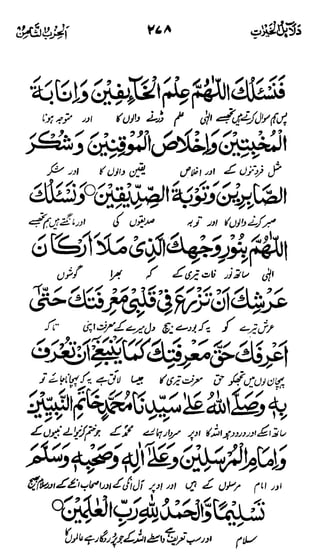 دلائل الخیرات ۲۷۸ الحزب الثامن
فَنَسْئَلُكَ اللّٰهُمَّ عِلْمَ الْخَآئِفِيْنَ وَاِنَابَةَ
پس ہم سوال کرتے ہیں تجھسے الٰہی علم ڈرنے والوں کا اور متوجہ ہونا
الْمُخْبِتِيْنَ وَاِخْلَاصَ الْمُوْقِنِيْنَ وَشُكْرَ
مثل فردتنوں کے اور اخلاص یقین والوں کا اور شکر
الصَّابِرِيْنَ وَتَوْبَةَ الصِّدِّيْقِيْنَ وَنَسْئَلُكَ
صبر کرنے والوں کا اور توبہ صدیقوں کی اور مانگتے ہیں ہم تجھسے
اللّٰهُمَّ بِنُوْرِ وَجْهِكَ الَّذِيْ مَلَأَ اَرْكَانَ
الٰہی ساتھ نور ذات تیری کے کہ بھرا گوشوں
عَرْشِكَ اَنْ تَزْرَعَ فِيْ قَلْبِيْ مَعْرِفَتَكَ حَتّٰى
عرش تیرے کو یہ کہ بودے بیچ دل میرے کے معرفت اپنی تاکہ
اَعْرِفَكَ حَقَّ مَعْرِفَتِكَ كَمَا يَنْبَغِيْ اَنْ تُعْرَفَ
پہچان لوں میں تجھکو حق معرفت تیری کا جیسا لائق ہے یہ کہ پہچانا جائے تو
بِهٖ وَصَلَّى اللّٰهُ عَلٰى سَيِّدِنَا مُحَمَّدٍ خَاتَمِ النَّبِيِّيْنَ
ساتھ اسکے اور درود ہو اللہ کا اوپر سردار ہمارے محمد کے جو ختم کرنیوالے نبیوں کے
وَاِمَامِ الْمُرْسَلِيْنَ وَعَلٰى اٰلِهٖ وَصَحْبِهٖ وَسَلَّمَ
اور امام مرسلوں کے ہیں اور اوپر آل انکی کے اور اصحاب انکے کے اور سلام بھیج
تَسْلِيْمًا وَّالْحَمْدُ لِلّٰهِ رَبِّ الْعٰلَمِيْنَ
سلام اور سب تعریف واسطے اللہ کے جو پروردگار ہے عالموں کا